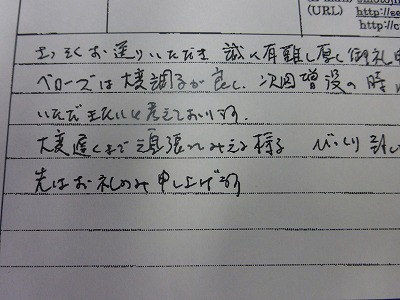 (URL) http://se
http://c
さっそくお送りいただき 誠に有難し厚く御礼申
ベローズは大変調子が良く、次回増設の時
いただきたいと考えております。
大変遅くまで頑張ってみえる様子 びっくり
先はお礼のみ申し上げます